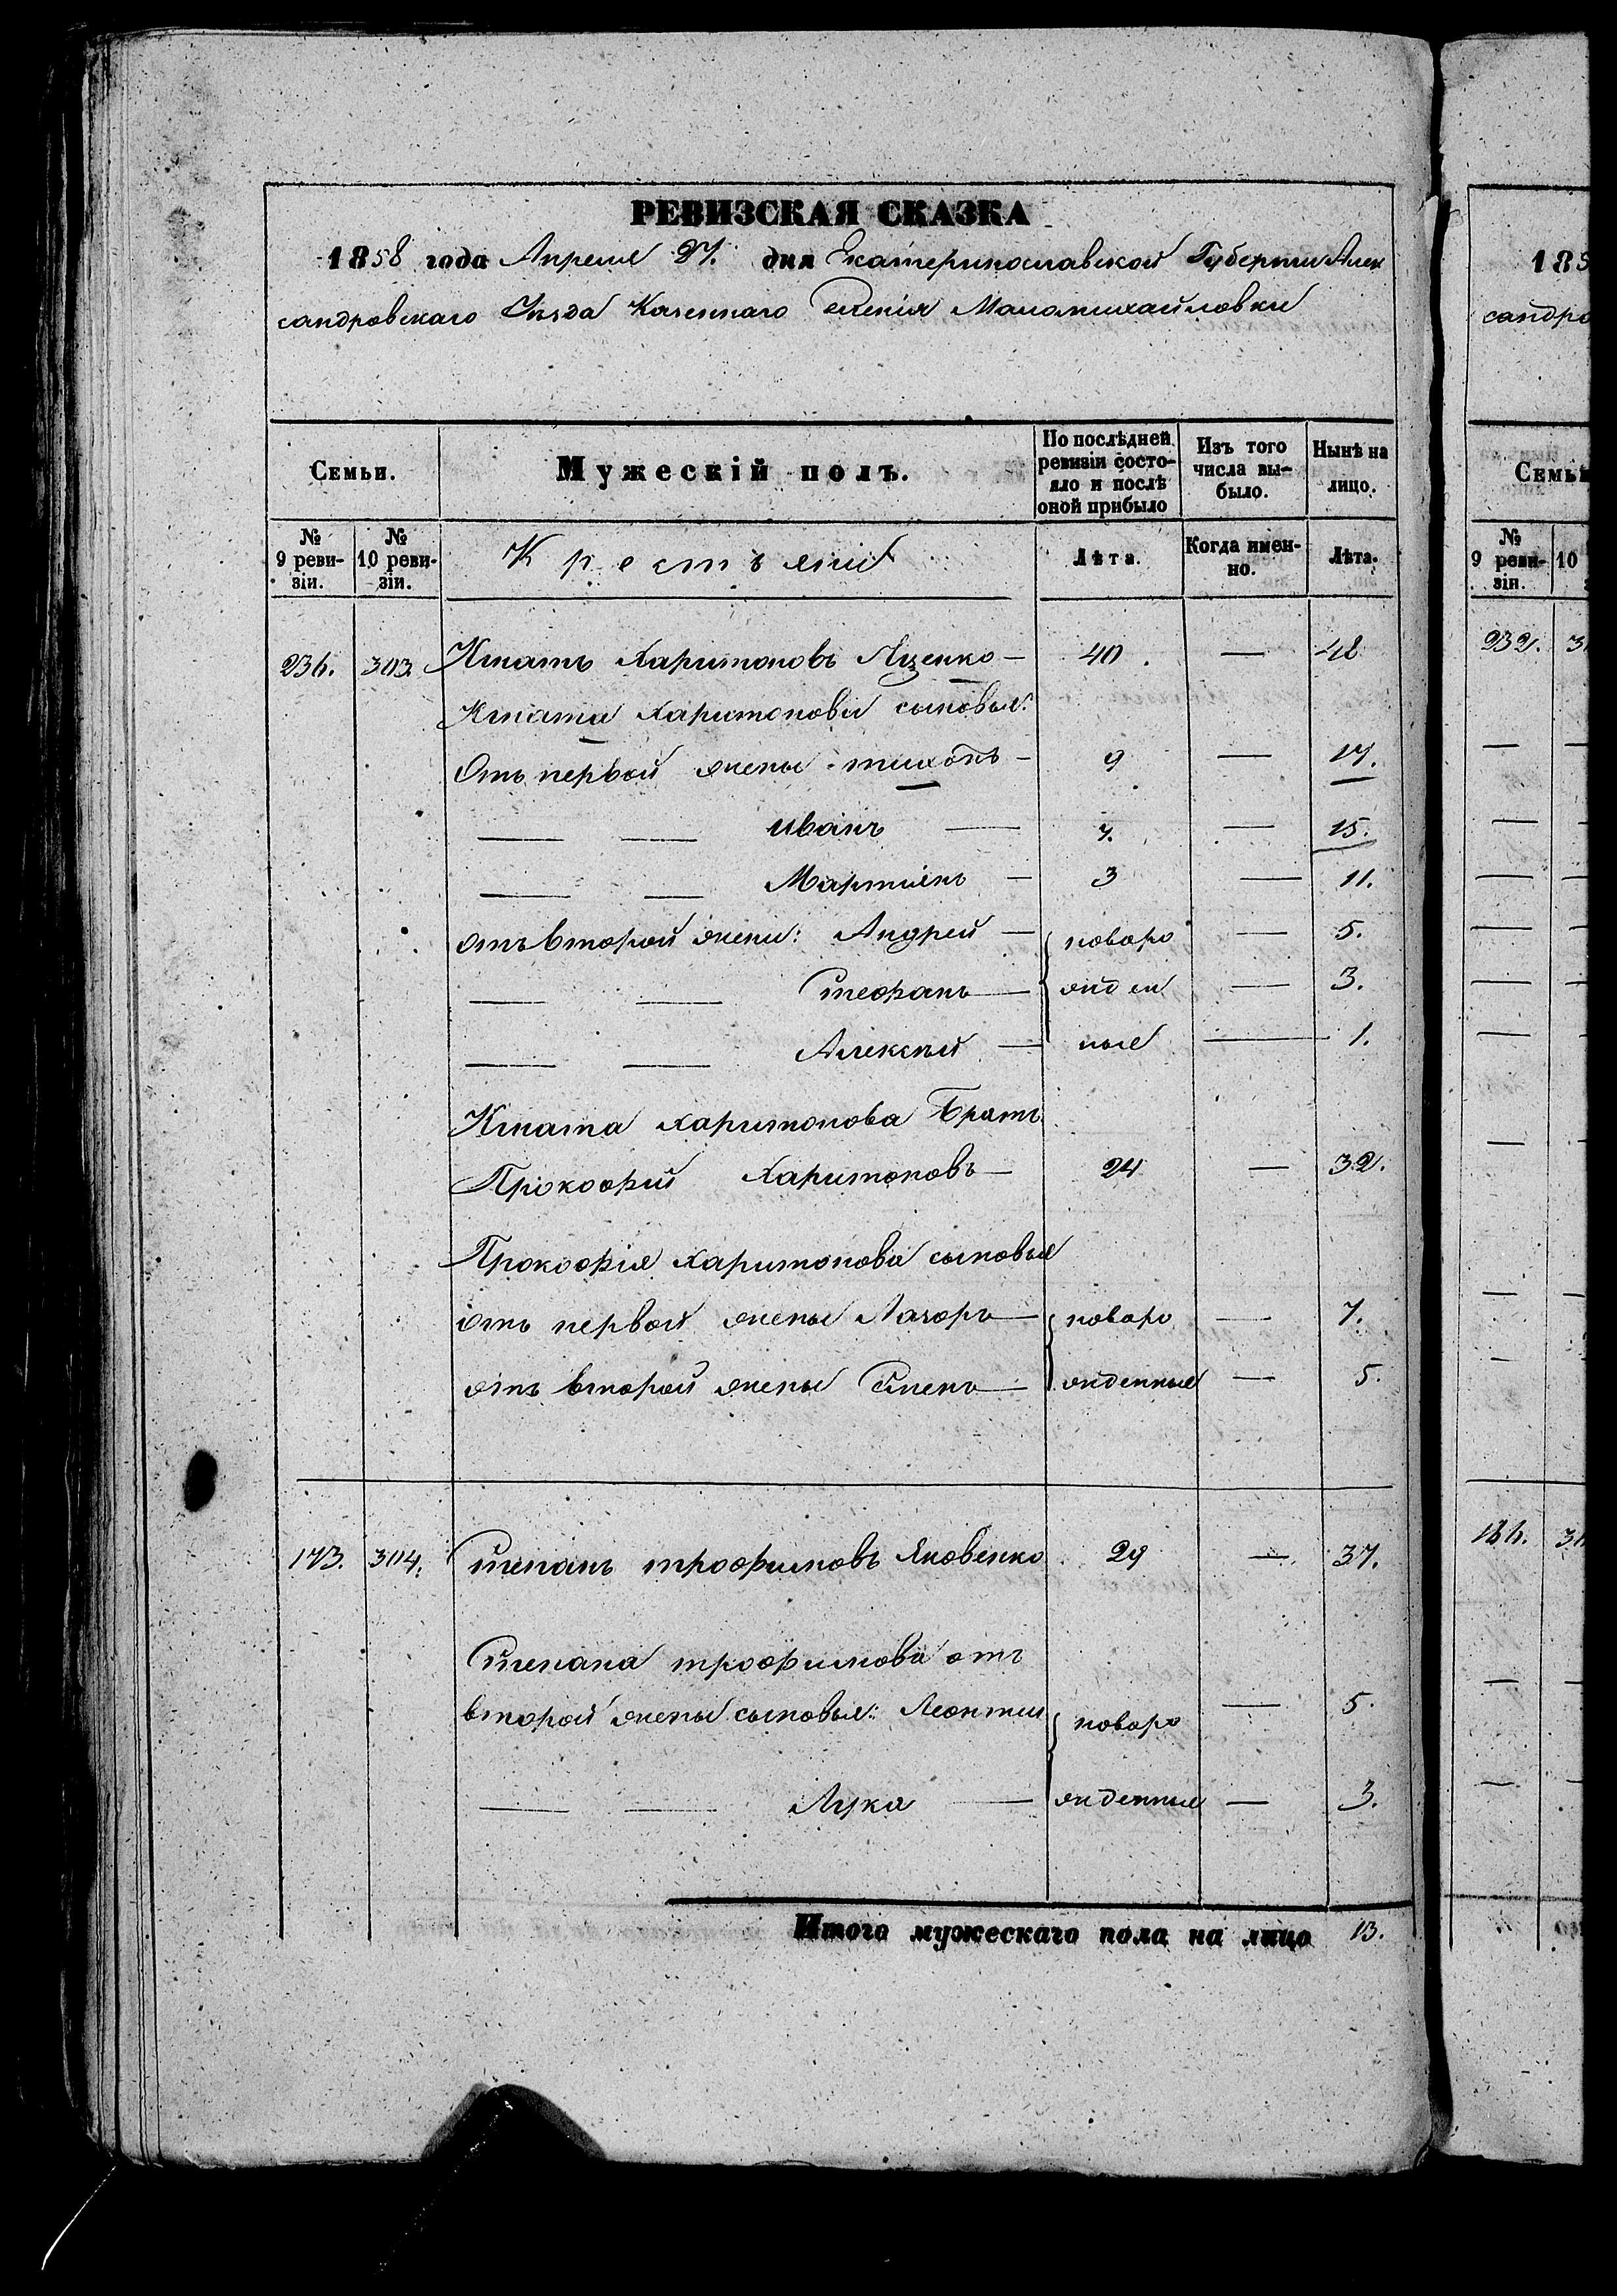 РЕВИЗСКАЯ СКАЗКА
1858 года Апреля 27. дня Екатеринославской Губернии Алек
сандровскаго Уѣзда Казеннаго Селенія Маломихайловки
Семьи.
Мужескій полъ.
По послѣдней ревизіи состояло и послѣ оной прибыло
Изъ того числа выбыло.
Нынѣ на лицо.
№ 9 ревизіи.
№ 10 ревизіи.
Крестьяне
Лѣта.
Когда именно.
Лѣта.
236. 303. Игнатъ Харитоновъ Яценко — 40. — 48
Игната Харитонова сыновья:
Отъ первой жены Тихонъ — 9 — 17.
— — Иванъ — 7. — 15.
— — Мартинъ — 3 — 11.
отъ второй жены: Андрей — новоро — 5.
— — Стефанъ — жден — 3.
— — Алексѣй — ные — 1.
Игната Харитонова Братъ
Прокофій Харитоновъ — 24 — 32.
Прокофія Харитонова сыновья
отъ первой жены Лазорь — новоро — 7.
отъ второй жены — жденные — 5.
173. 304. Степанъ Трофимовъ Яковенко 29 — 37.
Степана Трофимова отъ
второй жены сыновья: Леонтий новоро — 5
— — Лука — жденные — 3.
Итого мужескаго пола на лицо 13.
185
сандро
Семьи
№ 9 ревизіи.
10
232. 3
186. 3